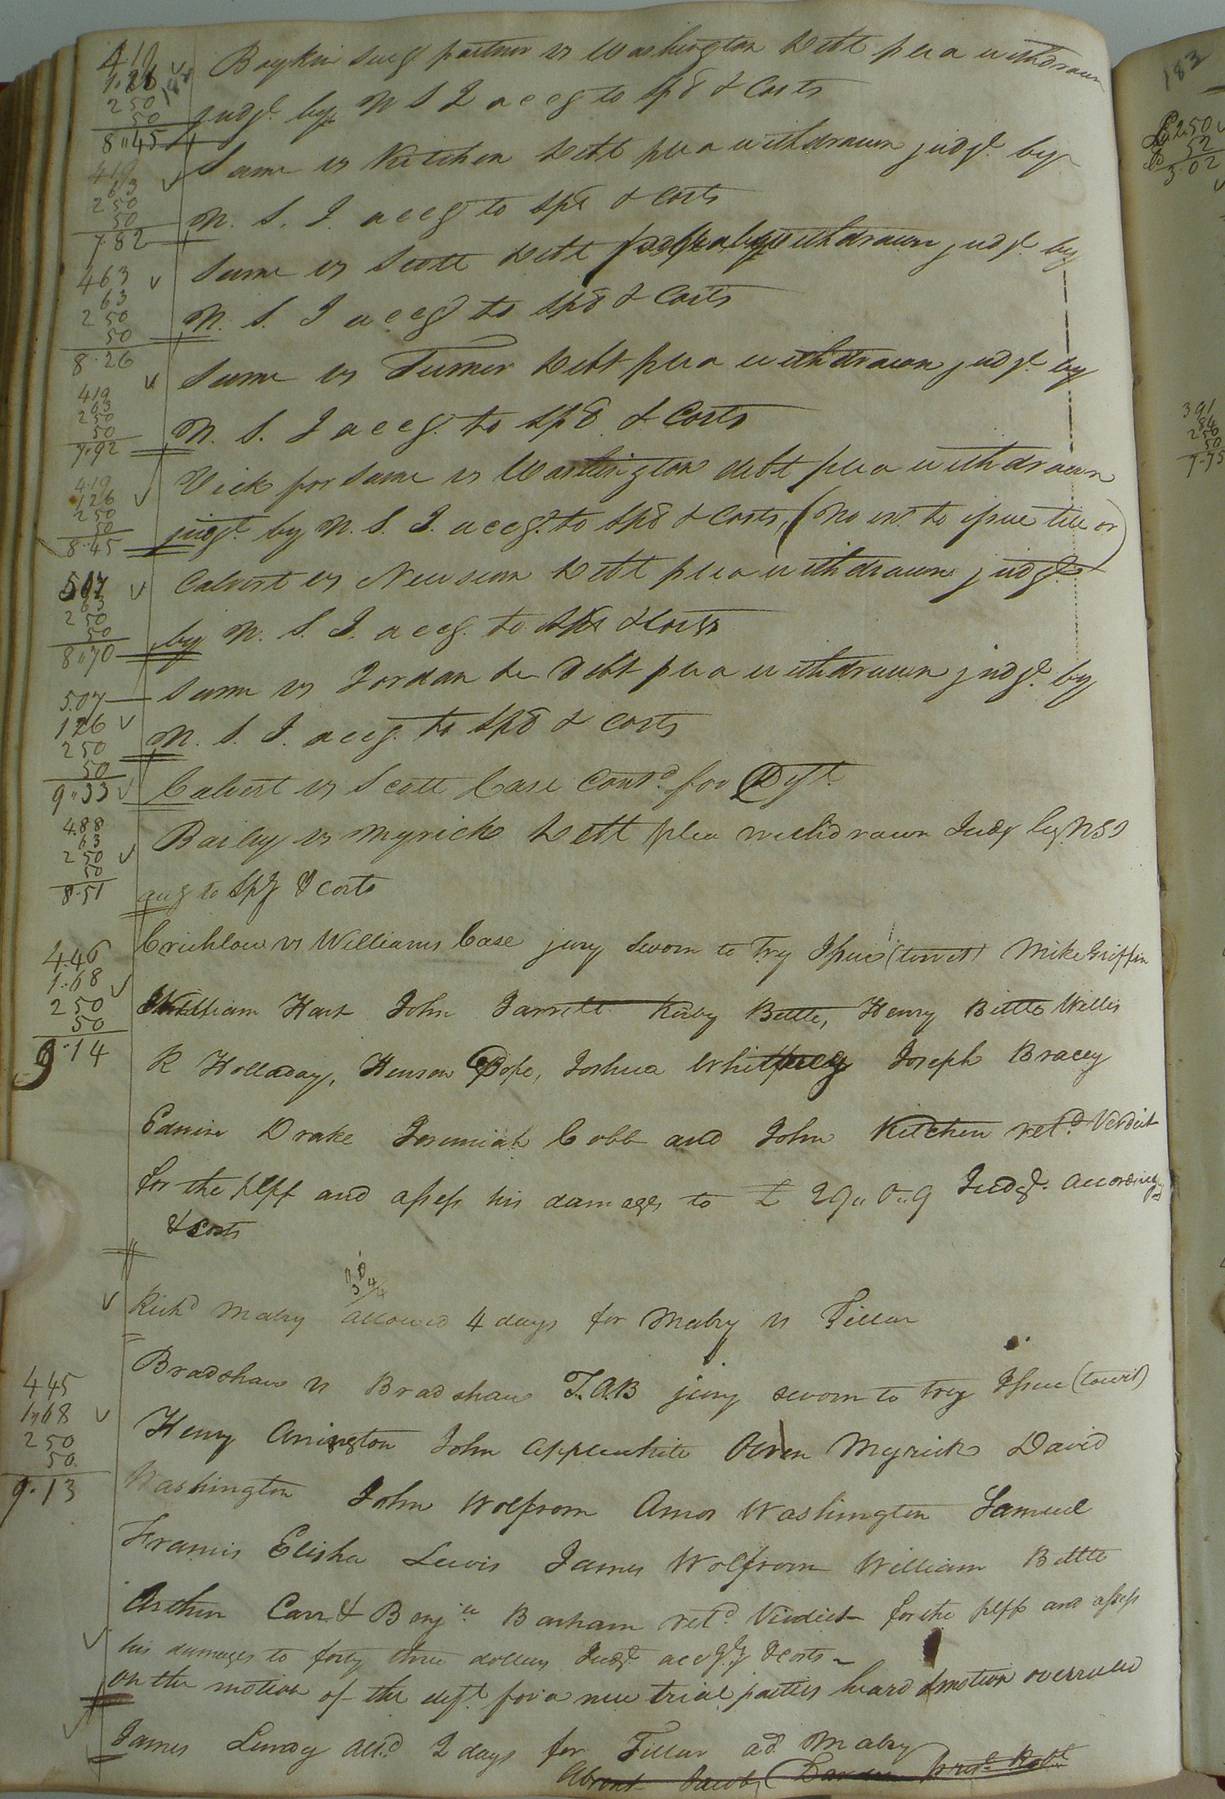 4 19
1.26
2 50
50
8"45
Boykin surg partner vs Washington Debt plea withdrawn
judgt. by N S I accg to Spd & Costs
4 19
63
2 50
50
7.82
Same vs Kitchen Debt plea withdrawn judgt. by
N. S. I. accg to Spd & Costs
463
63
2 50
50
8.26
Same vs Scott Debt withdrawn judgt by
N. S. I accg to Spd & Costs
419
263
250
50
7.92
Same vs Turner Debt plea withdrawn judgt. by
N. S. I accg. to Spd & Costs
4.19
126
250
50
8.45
Vick for Same vs Washington debt plea withdrawn
judgt. by N. S. I. accg. to Spd & Costs, (No ext. to issue till or)
507
63
250
50
8.70
Calvert vs Newsom Debt plea withdrawn judgt
by N. S. I. accg. to Spd & Costs
5.07
126
2 50
50
9"33
Same vs Jordan Debt plea withdrawn judgt. by
N. S. I. accg. to Spd & Costs
Calvert vs Scott Case Contd. for Deft.
4.88
63
2 50
50
8.51
Bailey vs Myrick Debt plea withdrawn Judgt by NSI
accg to Spy & Costs
4.46
1.68
250
50
9.14
Crichlow vs Williams Case jury sworn to Try Issue (towit) Mike Griffin
William Hart John Jarrell Kirby Bittle, Henry Bittle Willis
R Holladay, Henson Pope, Joshua Whitney Joseph Bracey
Edwin Drake Jeremiah Cobb and John Kitchen retd. Verdict
for the plff and assess his damages to £ 29"0"9 Judgt. according
& Costs
Richd Mabry allowed 4 days for Mabry vs Fillur
445
1.68
250
50.
9.13
Bradshaw vs Bradshaw T.A.B jury sworn to try Issue (towit)
Henry Arrington John Applewhite Orren Myrick David
Washington John Wolfrom Amos Washington Samuel
Francis Elisha Lewis James Wolfrom William Bittle
Arthur Carr & Benja Barham retd. Verdict for the plff and assess
his damages to forty three dollars Judgt. accgly & Costs
on the motion of the deft. for a new trial parties heard & motion overruled
James Lundy alld. 2 days for Fillur ad. Mabry
Absent Jacob Darden
183
2.50
52
3.02
391
84
250
50
7.75